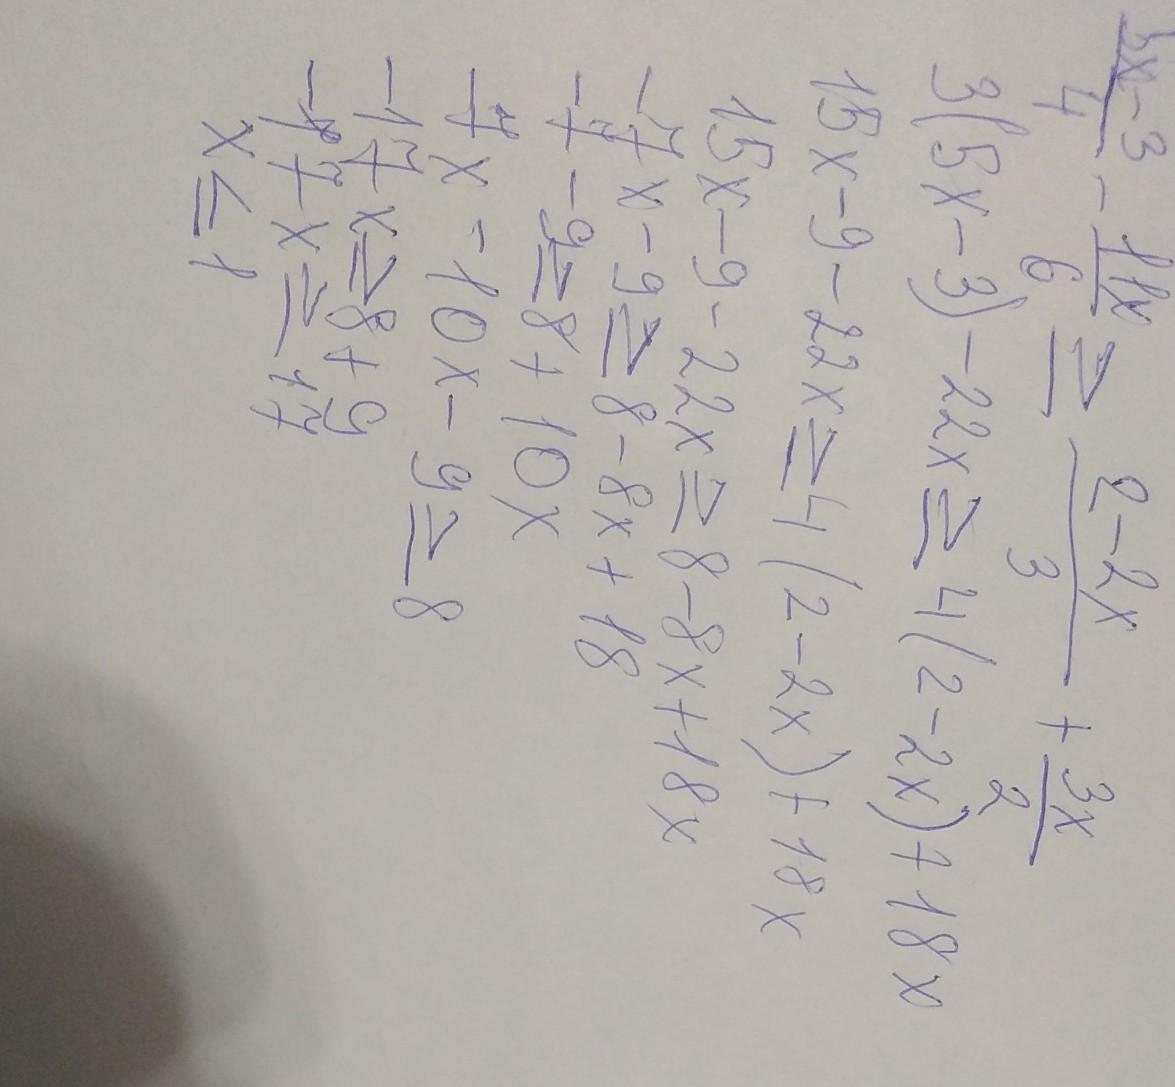 5x-3/4 - 11x/6 ≥ 2-2x/3 + 3x/2
3(5x-3)-22x≥4(2-2x)+18x
15x-9-22x≥4(2-2x)+18x
15x-9-22x≥8-8x+18x
-7x-9≥8-8x+18
-7-9≥8+10x
-7x-10x-9≥8
-17x≥8+9
-17x≥17
x≤1